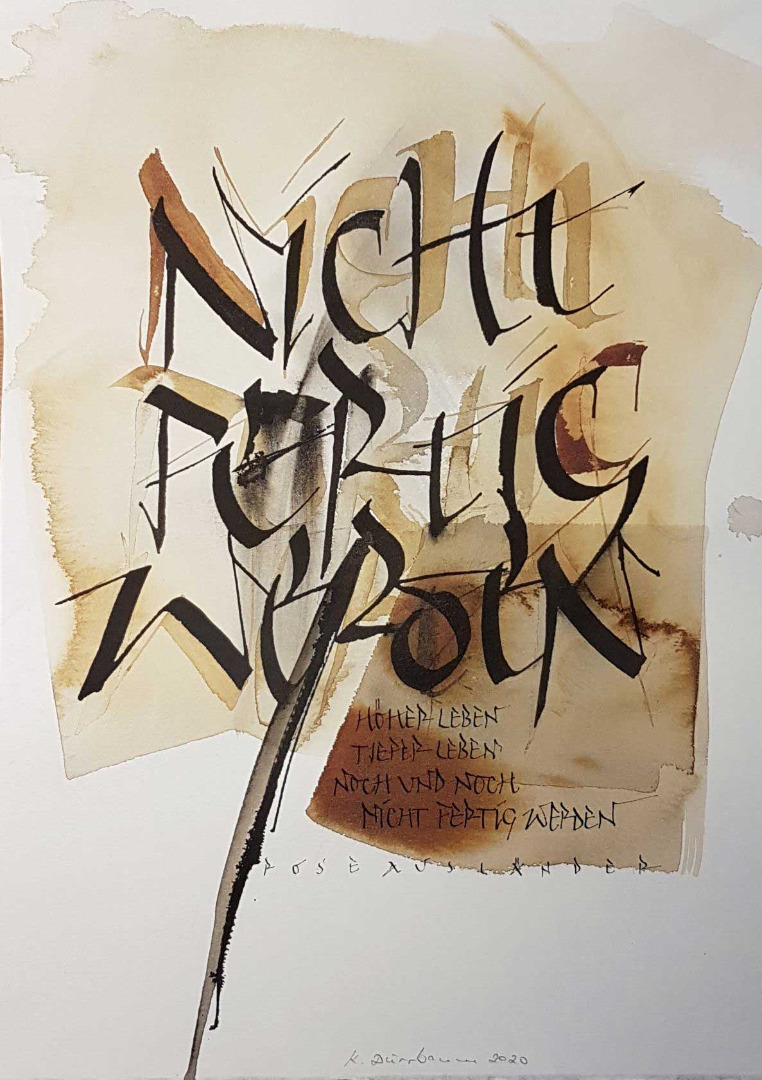 NICHT
FERTIG
WERDEN
HÖHER LEBEN
TIEFER LEBEN
NOCH UND NOCH
NICHT FERTIG WERDEN
ROSE AUSLÄNDER
K. 2020